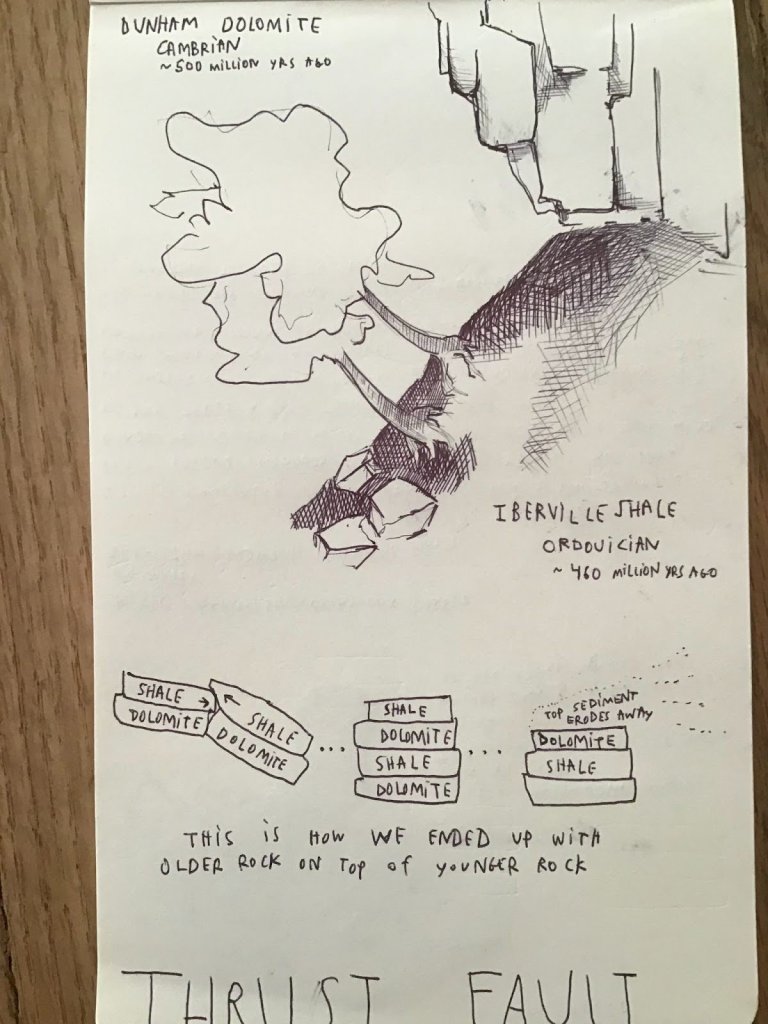 DUNHAM DOLOMITE
CAMBRIAN
~500 MILLION YRS AGO
IBERVILLE SHALE
ORDOVICIAN
~ 460 MILLION YRS AGO
SHALE
DOLOMITE
SHALE
DOLOMITE
...
SHALE
DOLOMITE
SHALE
DOLOMITE
...
TOP SEDIMENT
ERODES AWAY
DOLOMITE
SHALE
THIS IS HOW WE ENDED UP WITH
OLDER ROCK ON TOP OF YOUNGER ROCK
THRUST FAULT